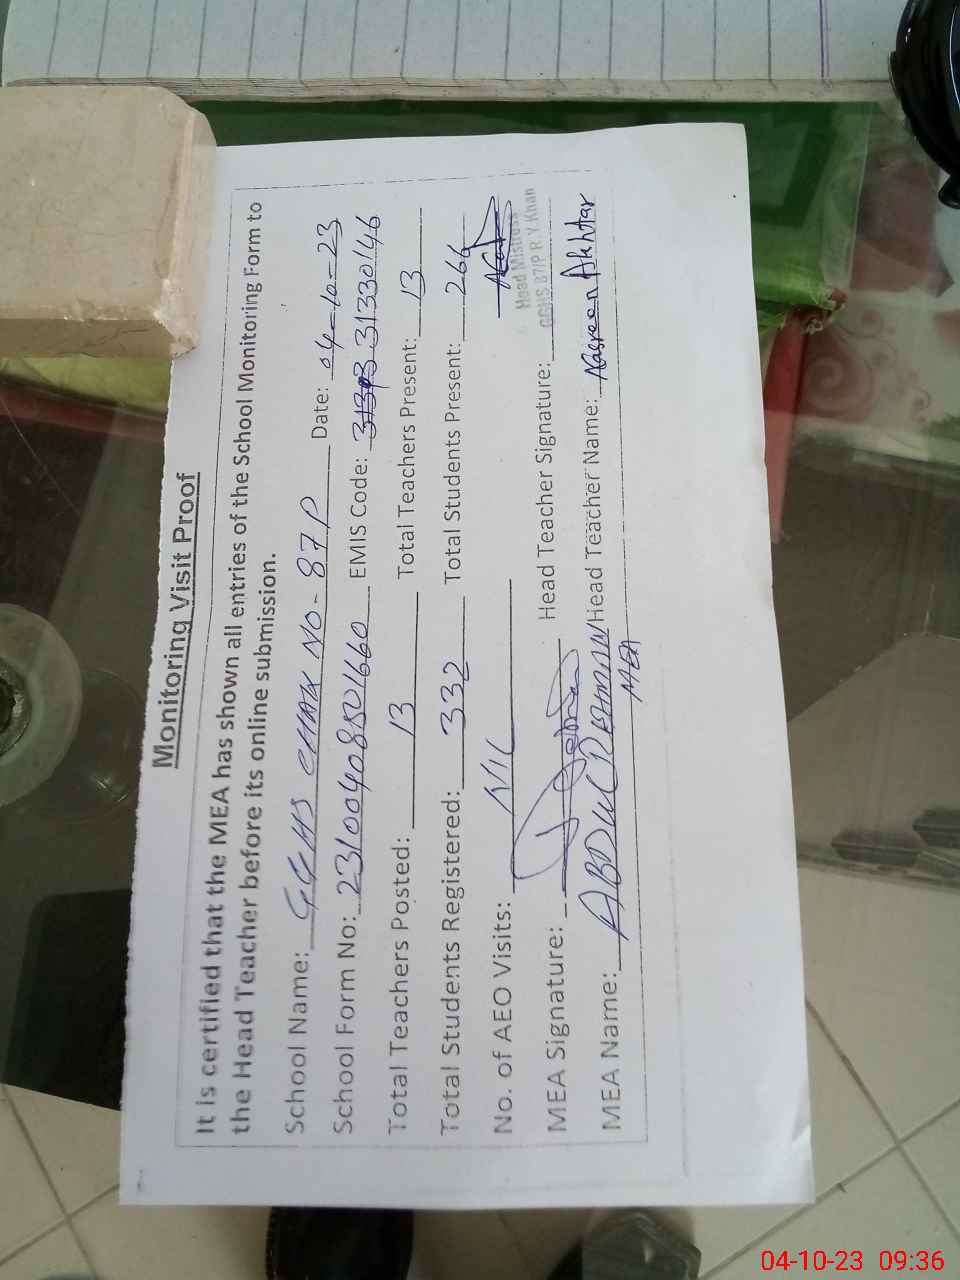 Monitoring Visit Proof
It is certified that the MEA has shown all entries of the School Monitoring Form to
the Head Teacher before its online submission.
School Name: GGHS CHAK NO-87 P Date: 04-10-23
School Form No: EMIS Code: 31330146
Total Teachers Posted: 13 Total Teachers Present: 13
Total Students Registered: 332 Total Students Present: 266
No. of AEO Visits: NIL
Head Mistress
GGHS 87/P R.Y.Khan
MEA Signature: Head Teacher Signature:
MEA Name: ABDUL REHMAN Head Teacher Name: Nasreen Akhtar
MEA
04-10-23 09:36